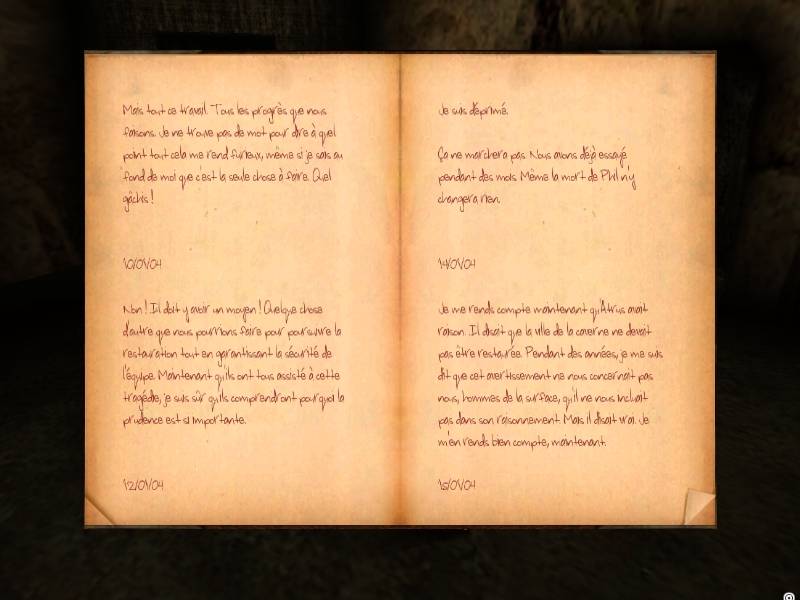 Mais tout ce travail. Tous les progrès que nous
faisons. Je ne trouve pas de mot pour dire à quel
point tout cela me rend furieux, même si je sais au
fond de moi que c'est la seule chose à faire. Quel
gâchis !
10/01/04
Non ! Il doit y avoir un moyen ! Quelque chose
d'autre que nous pourrions faire pour poursuivre la
restauration tout en garantissant la sécurité de
l'équipe. Maintenant qu'ils ont tous assisté à cette
tragédie, je suis sûr qu'ils comprendront pourquoi la
prudence est si importante.
12/01/04
Je suis déprimé.
Ça ne marchera pas. Nous avons déjà essayé
pendant des mois. Même la mort de Phil n'y
changera rien.
14/01/04
Je me rends compte maintenant qu'Atrus avait
raison. Il disait que la ville de la caverne ne devait
pas être restaurée. Pendant des années, je me suis
dit que cet avertissement ne nous concernait pas
nous, hommes de la surface, qu'il ne nous incluait
pas dans son raisonnement. Mais il disait vrai. Je
m'en rends bien compte, maintenant.
15/01/04